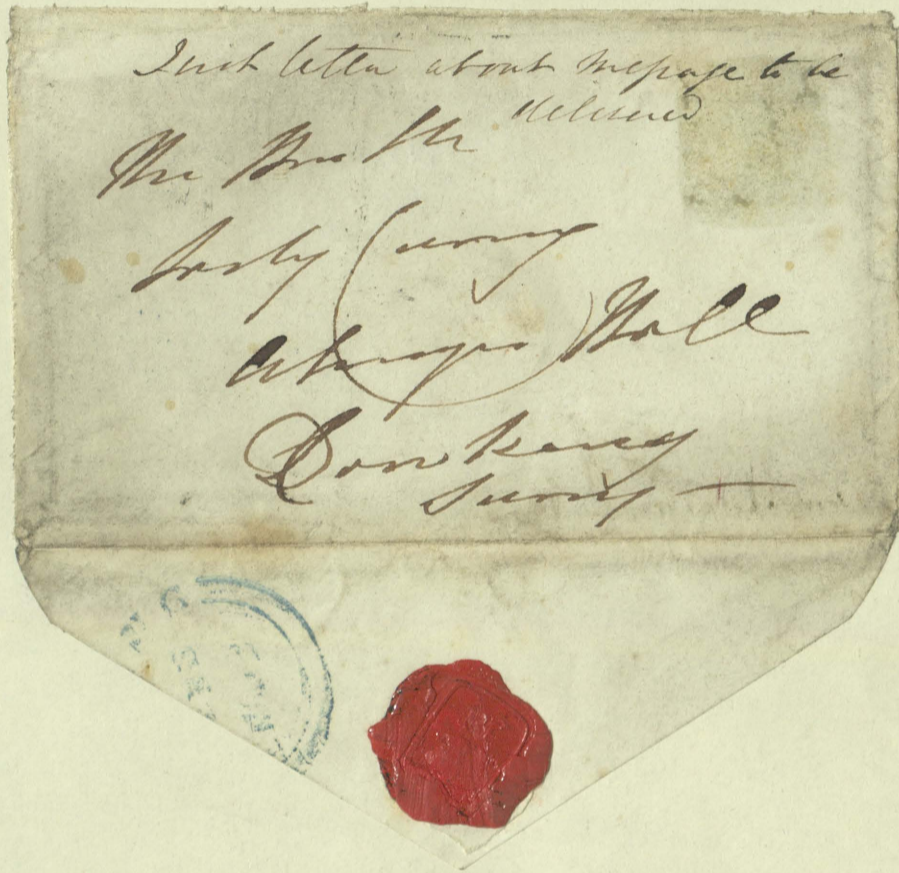 letter about message to be
delivered
The Honble
Lady
Abinger Hall
Dorking
Surrey